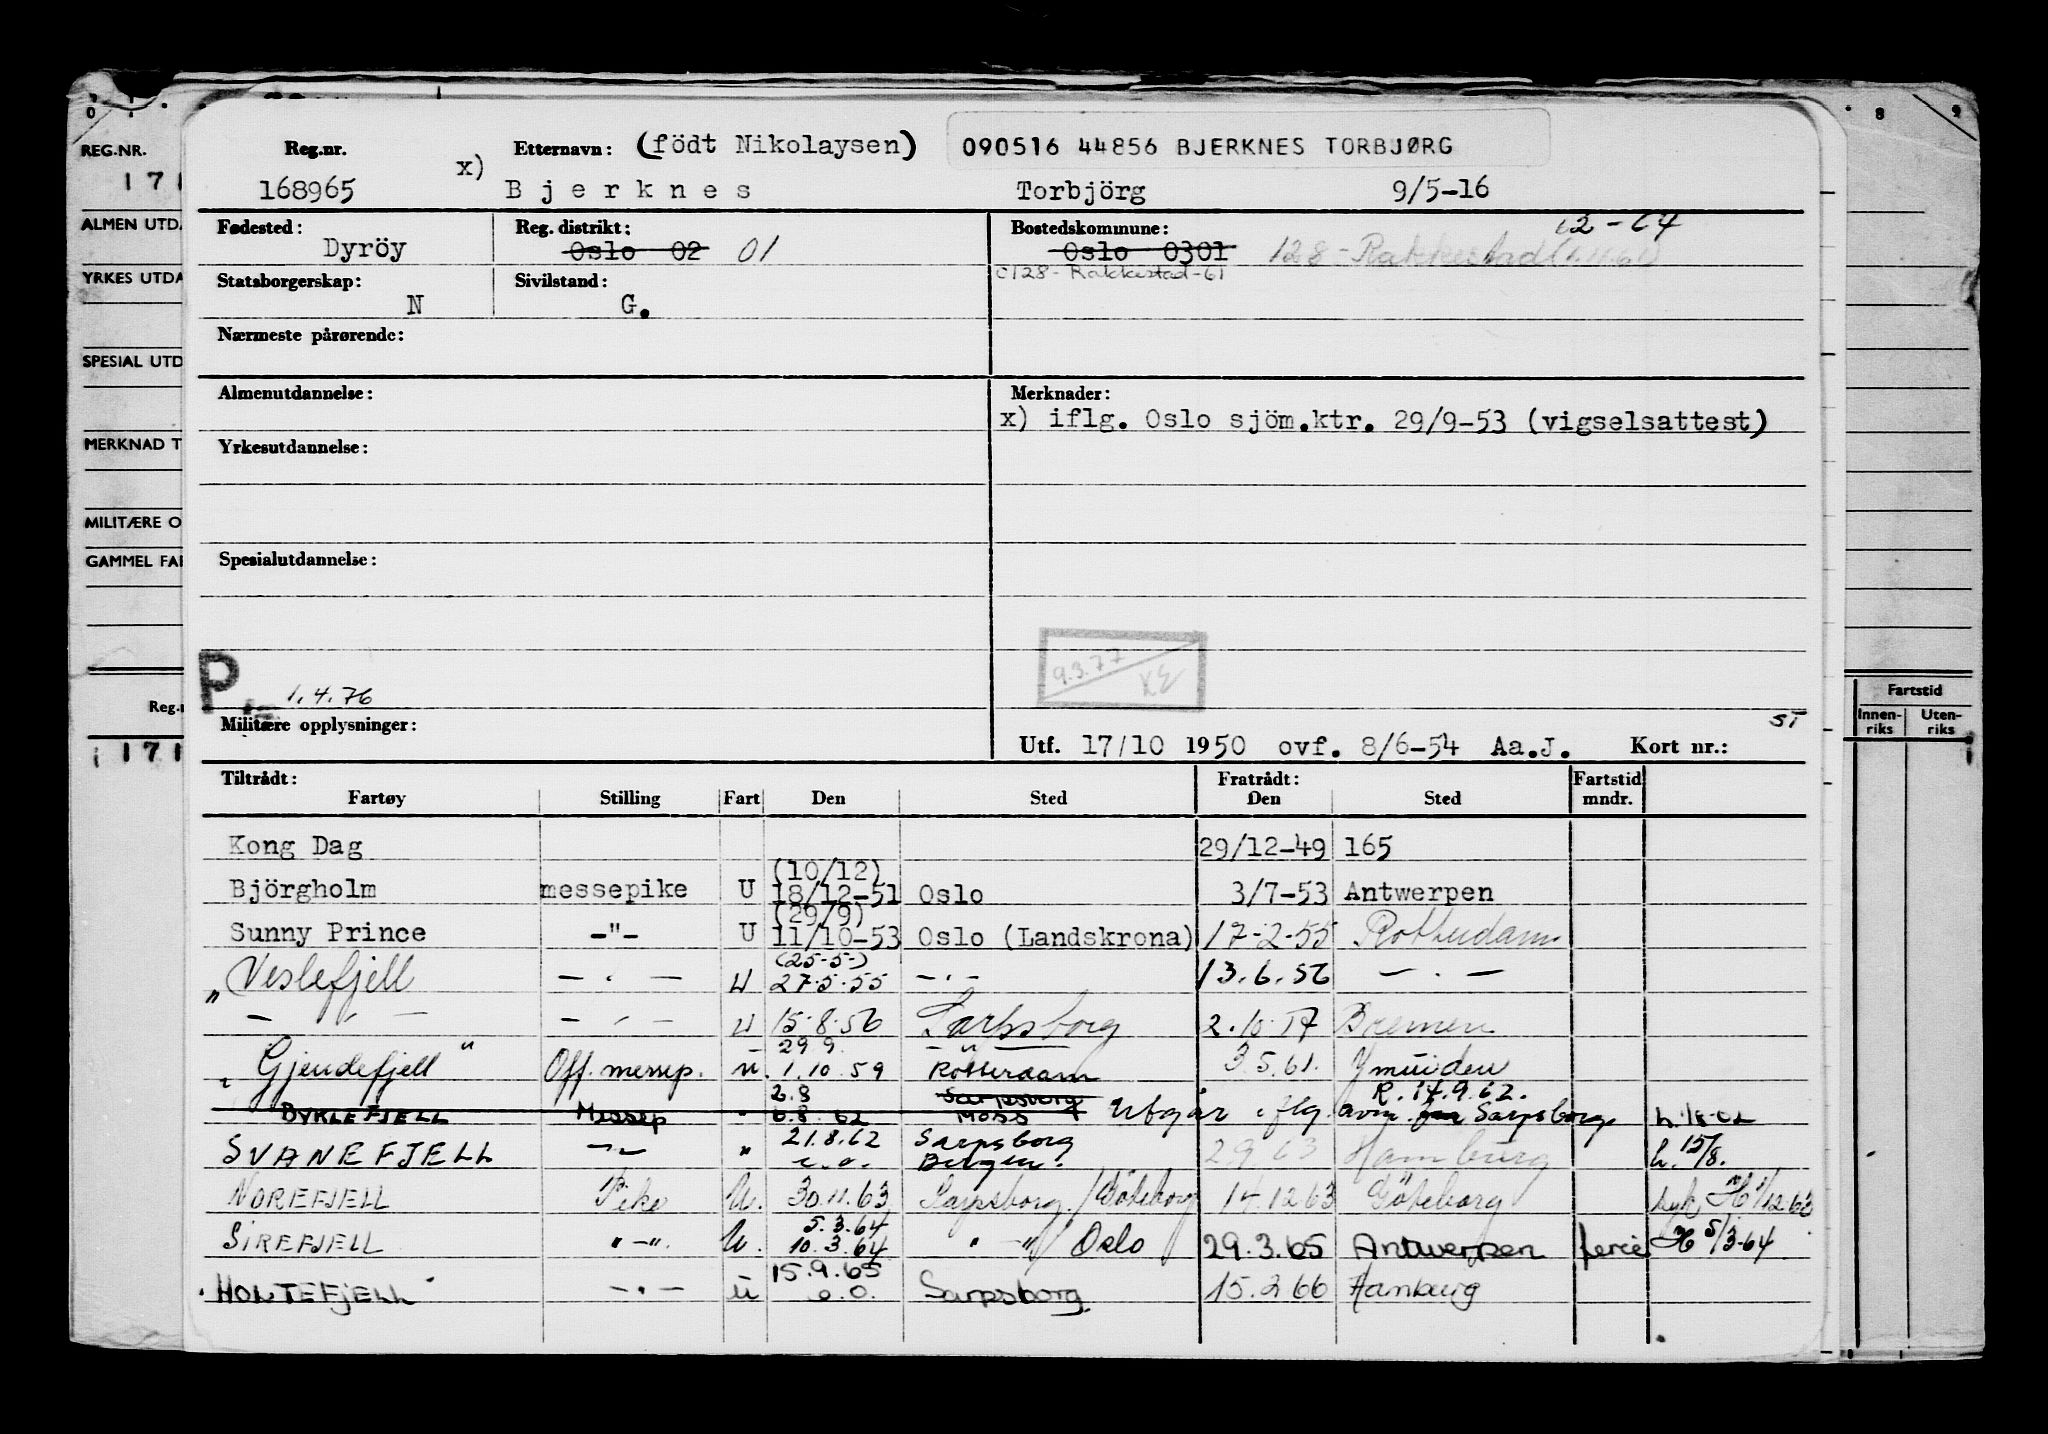 REG.NR.
171
ALMEN UTD
YRKES UTDA
SPESIAL UTD
MERKNAD T
MILITÆRE O
GAMMEL FA
Reg.
171
Reg.nr. x) Etternavn: (födt Nikolaysen) 090516 44856 BJERKNES TORBJØRG
168965 Bjerknes Torbjörg 9/5-16
Fødested: Reg. distrikt: Bostedskommune: 12-64
Dyröy Oslo 02 01 Oslo 0301 128-Rakkestad (1.11.61)
Statsborgerskap: Sivilstand: 0128-Rakkestad-61
N G.
Nærmeste pårørende:
Almenutdannelse: Merknader:
x) iflg. Oslo sjöm.ktr. 29/9-53 (vigselsattest)
Yrkesutdannelse:
Spesialutdannelse:
9.3.77
P 1.4.76
Militære opplysninger: ST
Utf. 17/10 1950 ovf. 8/6-54 Aa.J. Kort nr.:
Tiltrådt: Fratrådt: Fartstid
Fartøy Stilling Fart Den Sted Den Sted mndr.
Kong Dag 29/12-49 165
(10/12)
Björgholm messepike U 18/12-51 Oslo 3/7-53 Antwerpen
(29/9)
Sunny Prince -"- U 11/10-53 Oslo (Landskrona) 17-2-55 Rotterdam
(25-5-)
"Veslefjell — " — U 27.5.55 — " — 13.6.56 — " —
— " — — " — U 15.8.56 Sarpsborg 2.10.57 Bremen
29 9.
"Gjendefjell" Off. messep. u. 1.10.59 Rotterdam 3.5.61. Ymuiden
2.8 Sarpsborg R. 14.9.62.
BYKLEFJELL Messep " 6.8.62 Moss Utgår iflg. avm. Sarpsborg
21.8.62 Sarpsborg
SVANEFJELL -"- " e.o. Bergen. 2.9.63 Hamburg h. 15/8.
NOREFJELL Pike U. 30.11.63 Sarpsborg/Göteborg 14.12.63 Göteborg
5.3.64
SIREFJELL "-". U. 10.3.64 " - "/ Oslo 29.3.65 Antwerpen ferie H 5/3-64
15.9.65
"HOLTEFJELL" -"- u e.o. Sarpsborg 15.2.66 Hamburg
Fartstid
Innen-riks Uten-riks